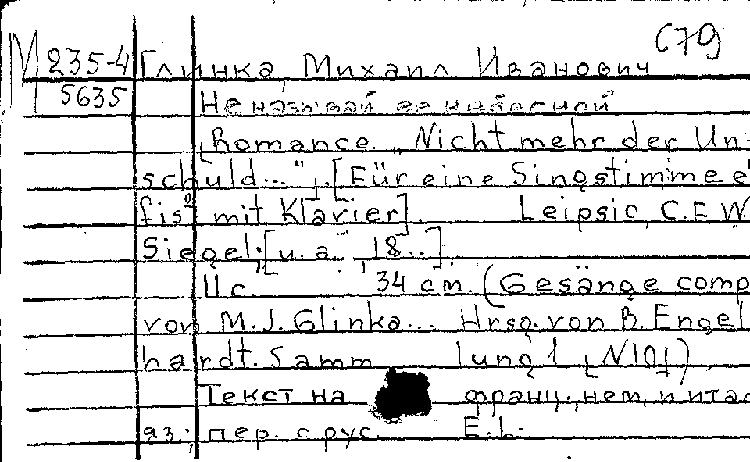 М 235-4 Глинка, Михаил Иванович С79
5635 Не называй ее небесной
Romance „Nicht mehr der Un-
schuld..." [Für eine Singstimme e'-
fis² mit Klavier]. Leipsic, C.F.W.
Siegel; [u.a., 18..].
11 с. 34 cm. (Gesänge comp.
von M.J. Glinka... Hrsg. von B. Engel-
hardt. Samm lung 1, N 10)
Текст на франц., нем. и итал.
яз; пер. с рус. E.L.